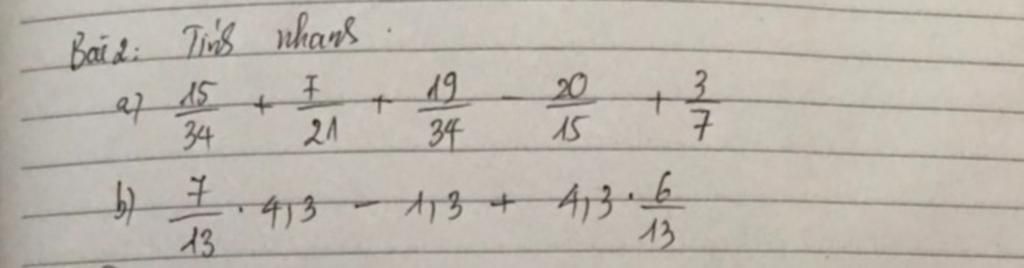 Bài 2: Tính nhanh.
a) 15/34 + 7/21 + 19/34 - 20/15 + 3/7
b) 7/13 . 4,3 - 1,3 + 4,3 . 6/13